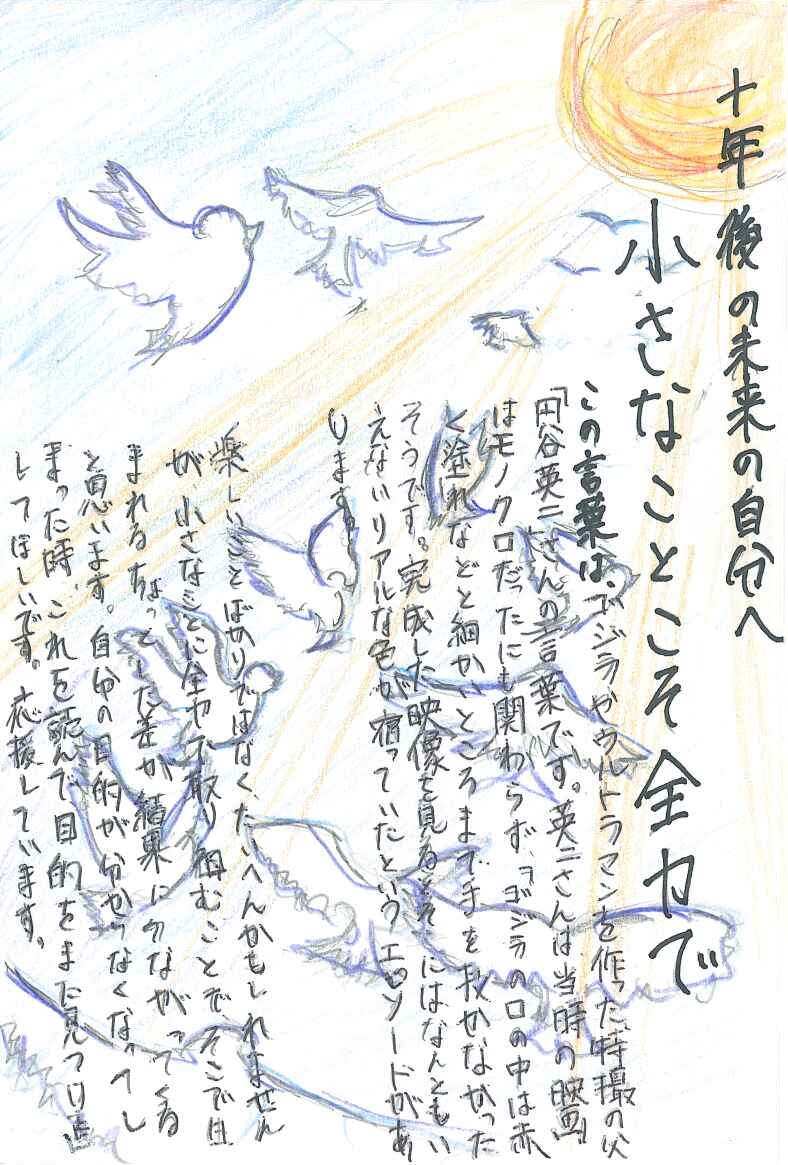 十年後の未来の自分へ
小さなことこそ全力で
この言葉は、ゴジラやウルトラマンを作った、特撮の父
「円谷英二」さんの言葉です。英二さんは当時の映画
はモノクロだったにも関わらず、「ゴジラの口の中は赤
く塗れ」などと細かいところまで手を抜かなかった
そうです。完成した映像を見るとそこにはなんともい
えないリアルな色が宿っていたというエピソードがあ
ります。
楽しいことばかりではなく、たいへんかもしれません
が、小さなことに全力で取り組むことで、そこで生
まれるちょっとした差が結果につながってくる
と思います。自分の目的が分からなくなってし
まった時、これを読んで目的をまた見つけ直
してほしいです。応援しています。